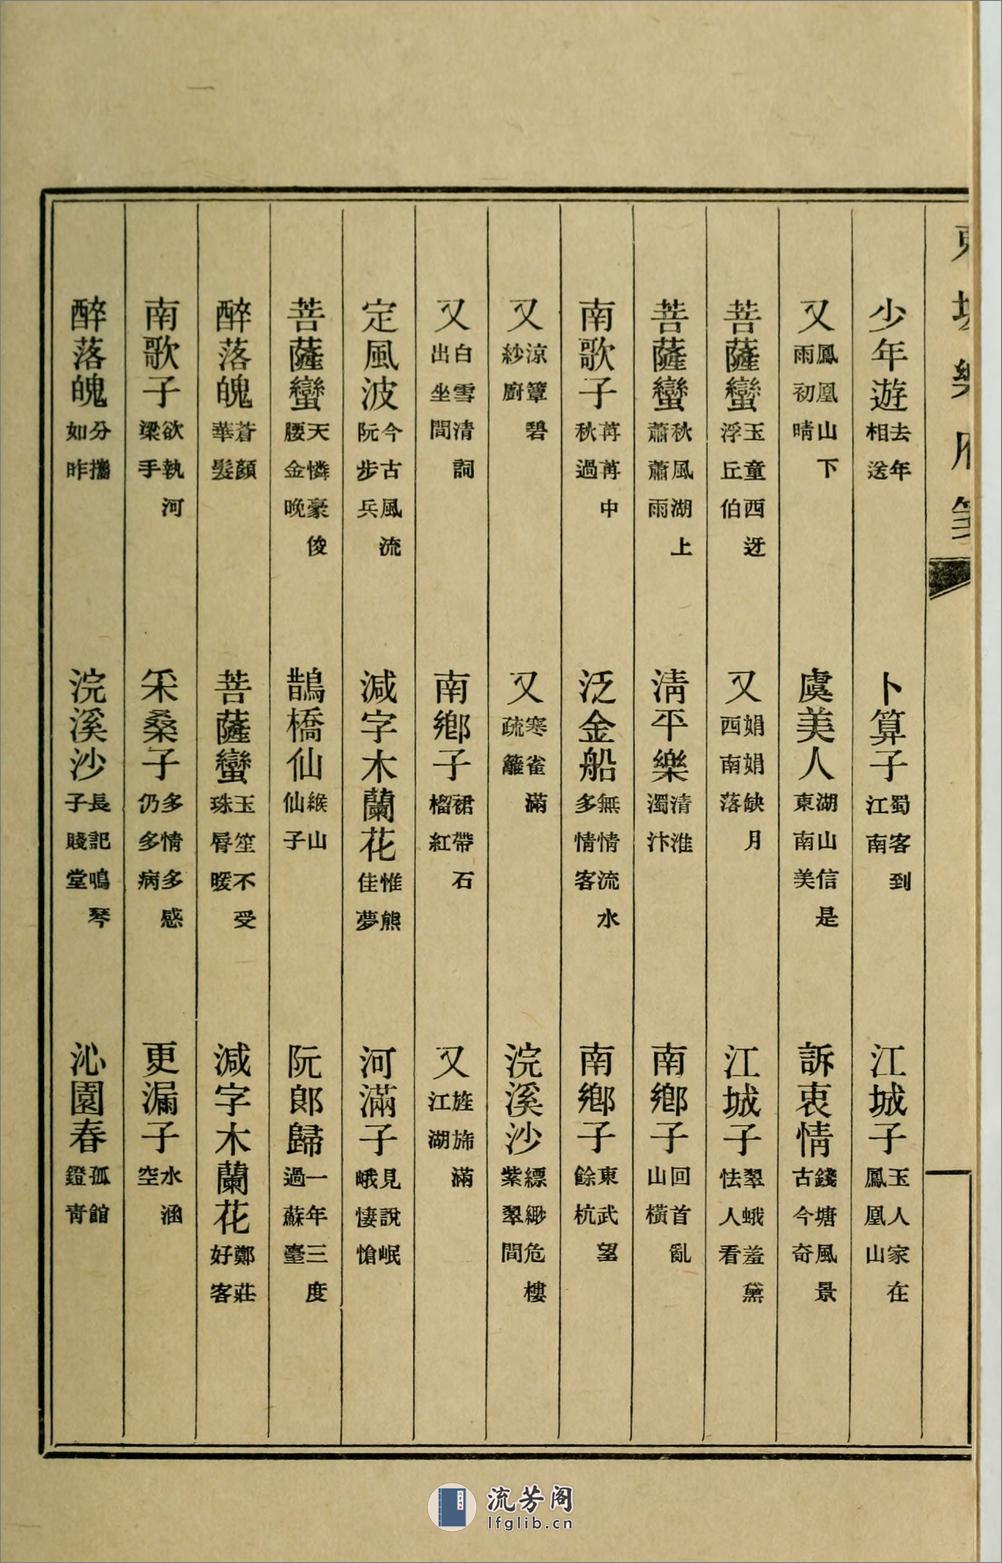 東坡樂府箋
少年遊 去年相送 卜算子 蜀客到江南 江城子 玉人家在鳳凰山
又 鳳凰山下雨初晴 虞美人 湖山信是東南美 訴衷情 錢塘風景古今奇
菩薩蠻 玉童西迓浮丘伯 又 娟娟缺月西南落 江城子 翠蛾羞黛怯人看
菩薩蠻 秋風湖上蕭蕭雨 淸平樂 清淮濁汴 南鄉子 回首亂山橫
南歌子 苒苒中秋過 泛金船 無情流水多情客 南鄉子 東武望餘杭
又 涼簟碧紗廚 又 寒雀滿疏籬 浣溪沙 縹緲危樓紫翠間
又 白雪清詞出坐間 南鄉子 裙帶石榴紅 又 旌旆滿江湖
定風波 今古風流阮步兵 減字木蘭花 惟熊佳夢 河滿子 見說岷峨悽愴
菩薩蠻 天憐豪俊腰金晚 鵲橋仙 緱山仙子 阮郎歸 一年三度過蘇臺
醉落魄 蒼顏華髮 菩薩蠻 玉笙不受珠脣暖 減字木蘭花 鄭莊好客
南歌子 欲執河梁手 采桑子 多情多感仍多病 更漏子 水涵空
醉落魄 分攜如昨 浣溪沙 長記鳴琴子賤堂 沁園春 孤館鐙青
流芳阁
lfglib.cn